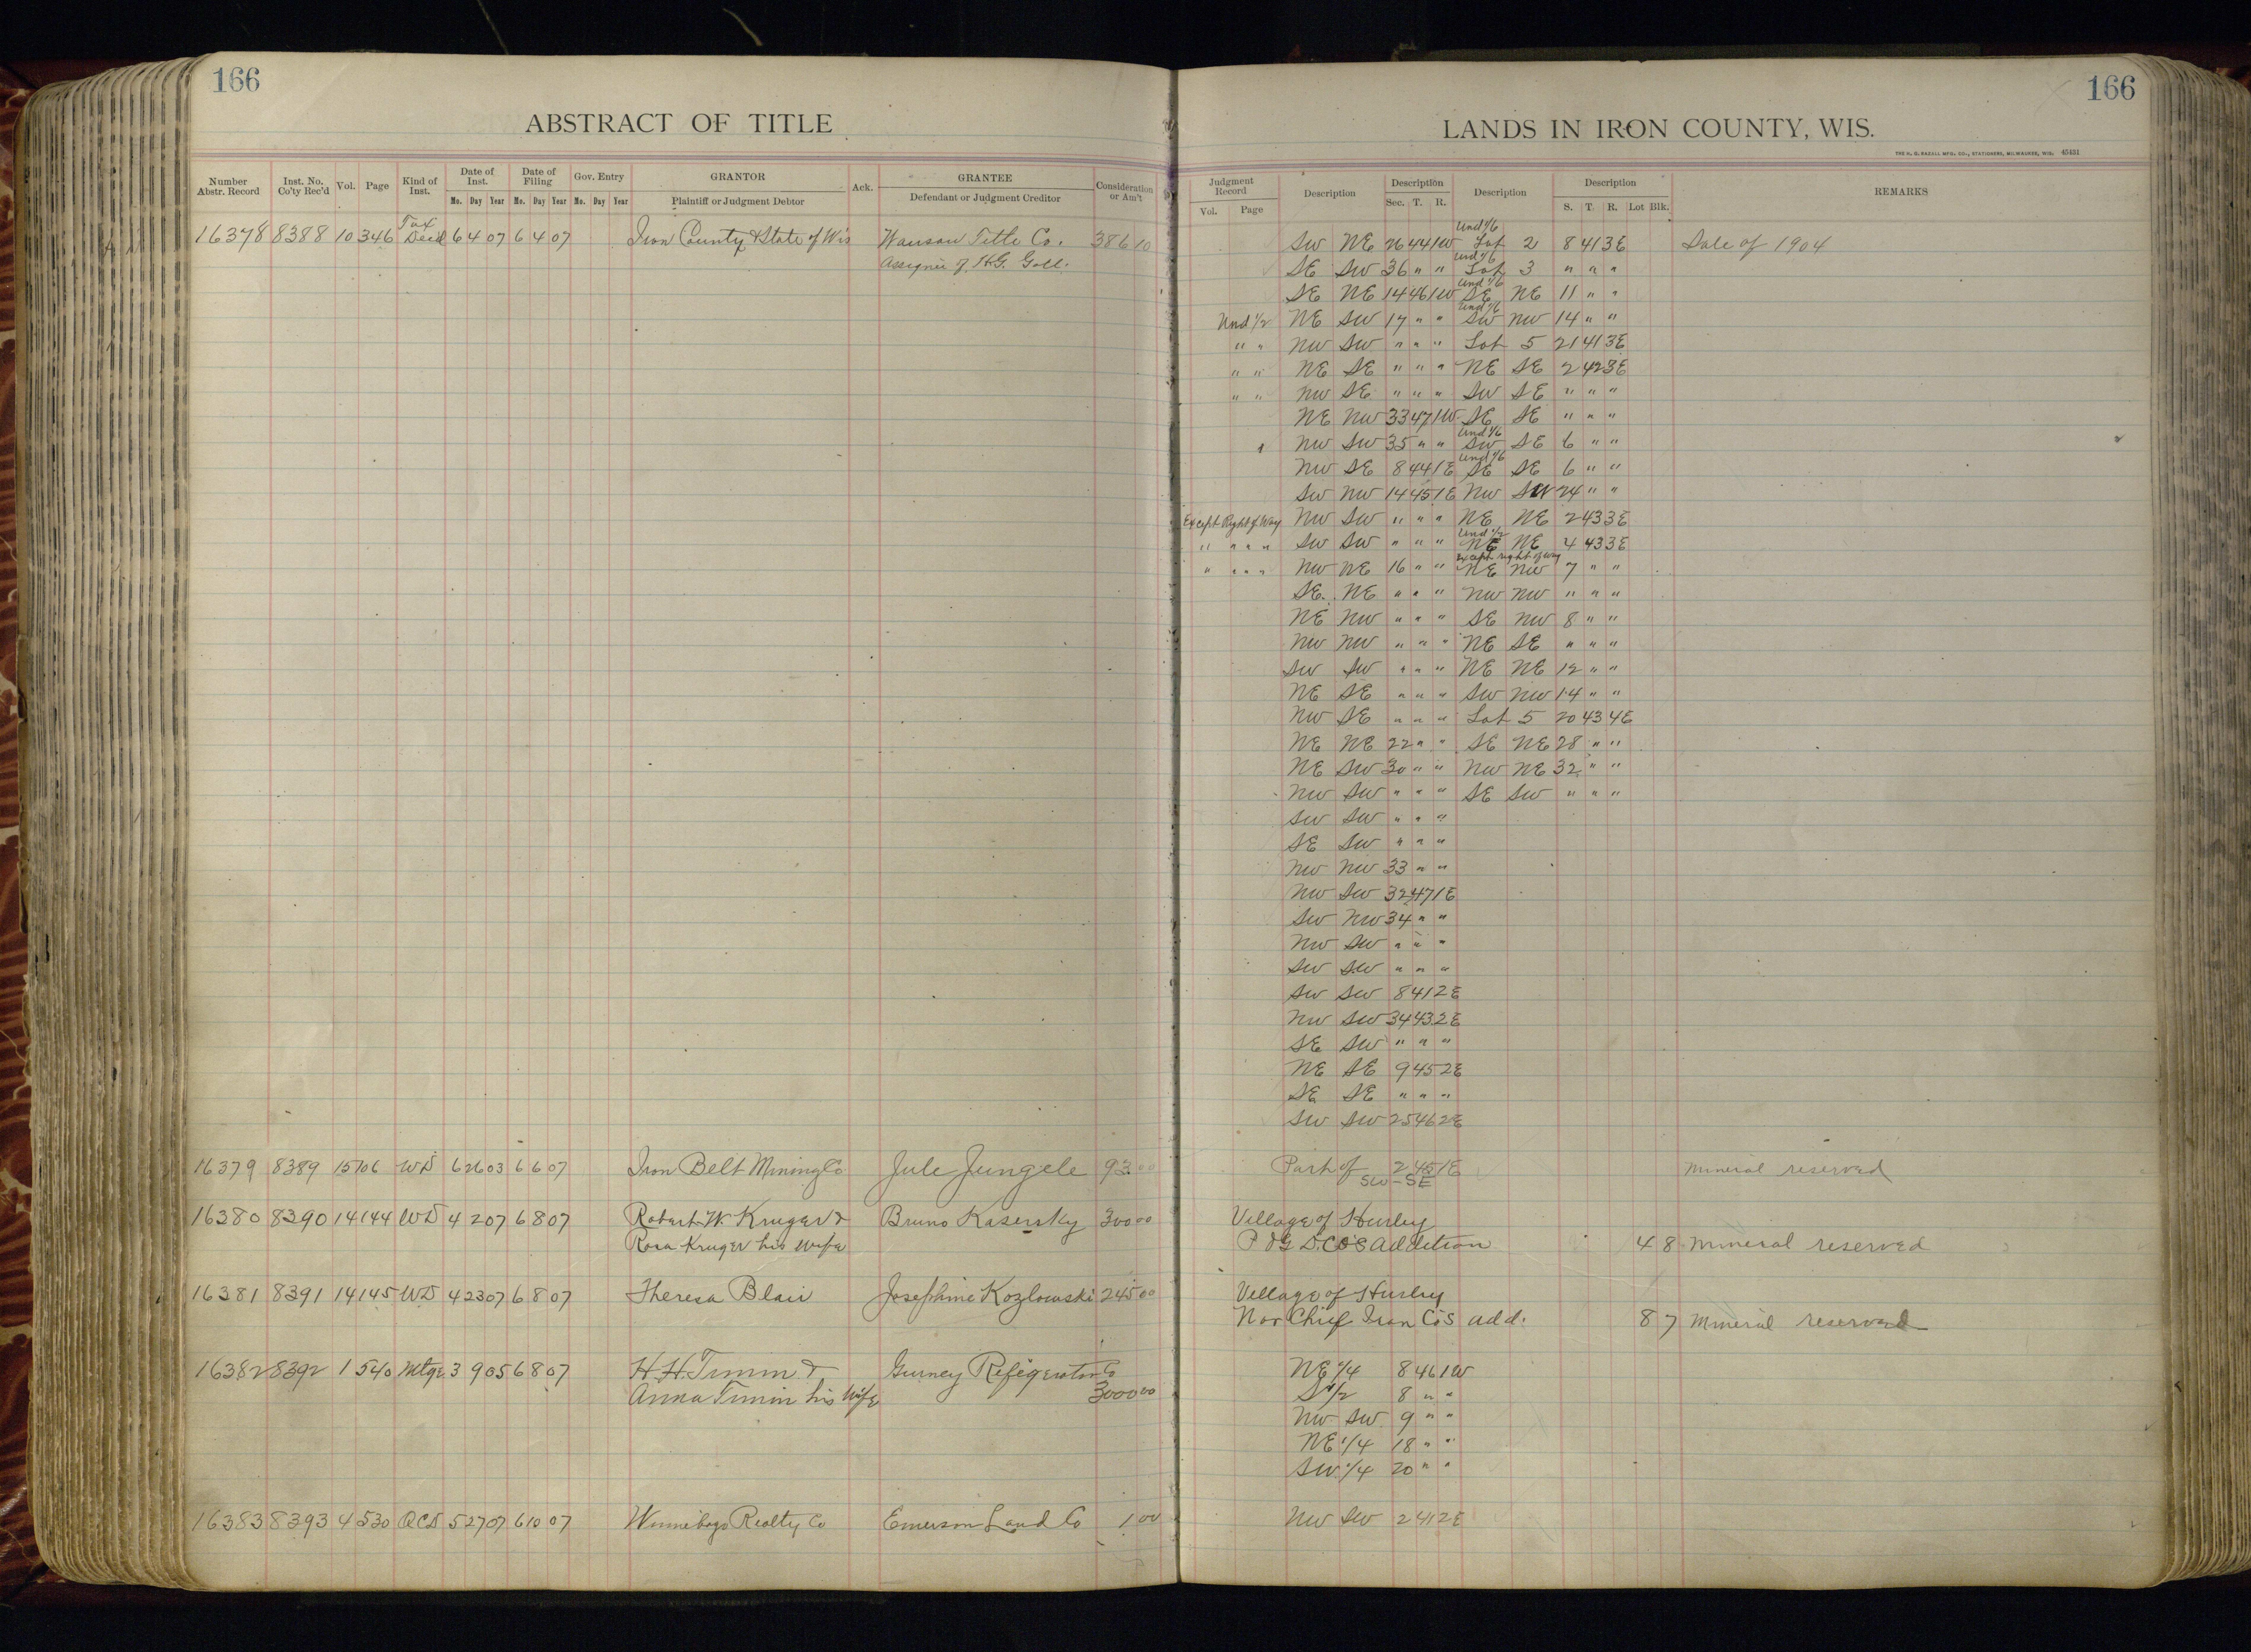 166
166
ABSTRACT OF TITLE
LANDS IN IRON COUNTY, WIS.
THE H. G. RAZALL MFG. CO., STATIONERS, MILWAUKEE, WIS. 45431
Number Abstr. Record Inst. No. Co'ty Rec'd Vol. Page Kind of Inst. Date of Inst. Mo. Day Year Date of Filing Mo. Day Year Gov. Entry Mo. Day Year GRANTOR Plaintiff or Judgment Debtor Ack. GRANTEE Defendant or Judgment Creditor Consideration or Am't
Judgment Record Vol. Page Description Description Sec. T. R. Description Description S. T. R. Lot Blk. REMARKS
16378 8388 10 346 Tax Deed 6 4 07 6 4 07 Iron County & State of Wis Wausau Title Co. 386 10
Assignee of H.G. Goll.
Und 1/6
SW NE 26 44 1W Lot 2 8 41 3E Sale of 1904
Und 1/6
SE SW 36 " " Lot 3 " " "
Und 1/6
SE NE 14 46 1W SE NE 11 " "
Und 1/6
Und 1/2 NE SW 17 " " SW NW 14 " "
" " NW SW " " " Lot 5 21 41 3E
" " NE SE " " " NE SE 2 42 3E
" " NW SE " " " SW SE " " "
NE NW 33 47 1W SE SE " " "
Und 1/6
NW SW 35 " " SW SE 6 " "
Und 1/6
NW SE 8 44 1E SE SE 6 " "
SW NW 14 45 1E NW SW 24 " "
Except Right of Way NW SW " " " NE NE 2 43 3E
Und 1/2
" " " " SW SW " " " NE NE 4 43 3E
Except right of way
" " " " NW NE 16 " " NE NW 7 " "
SE NE " " " NW NW " " "
NE NW " " " SE NW 8 " "
NW NW " " " NE SE " " "
SW SW " " " NE NE 12 " "
NE SE " " " SW NW 14 " "
NW SE " " " Lot 5 20 43 4E
NE NE 22 " " SE NE 28 " "
NE SW 30 " " NW NE 32 " "
NW SW " " " SE SW " " "
SW SW " " "
SE SW " " "
NW NW 33 " "
NW SW 32 47 1E
SW NW 34 " "
NW SW " " "
SW SW " " "
SW SW 8 41 2E
NW SW 34 43 2E
SE SW " " "
NE SE 9 45 2E
SE SE " " "
SW SW 25 46 2E
16379 8389 15 106 WD 6 26 03 6 6 07 Iron Belt Mining Co Jule Jungele 93.00 Part of 2 45 1E Mineral reserved
SW - SE
16380 8390 14 144 WD 4 2 07 6 8 07 Robert W. Kruger & Bruno Kasersky 300 00 Village of Hurley
Rosa Kruger his wife P & G D. Co's Addition 4 8 Mineral reserved
16381 8391 14 145 WD 4 23 07 6 8 07 Theresa Blair Josephine Kozlowski 245 00 Village of Hurley
Nor Chief Iron Co's add. 8 7 Mineral reserved
16382 8392 1 540 Mtge 3 9 05 6 8 07 H. H. Timm & Gurney Refigerator Co NE 1/4 8 46 1W
Anna Timm his Wife 3000 00 S 1/2 8 " "
NW SW 9 " "
NE 1/4 18 " "
SW 1/4 20 " "
16383 8393 4 530 QCD 5 27 07 6 10 07 Winnebago Realty Co Emerson Land Co 1 00 NW SW 2 41 2E